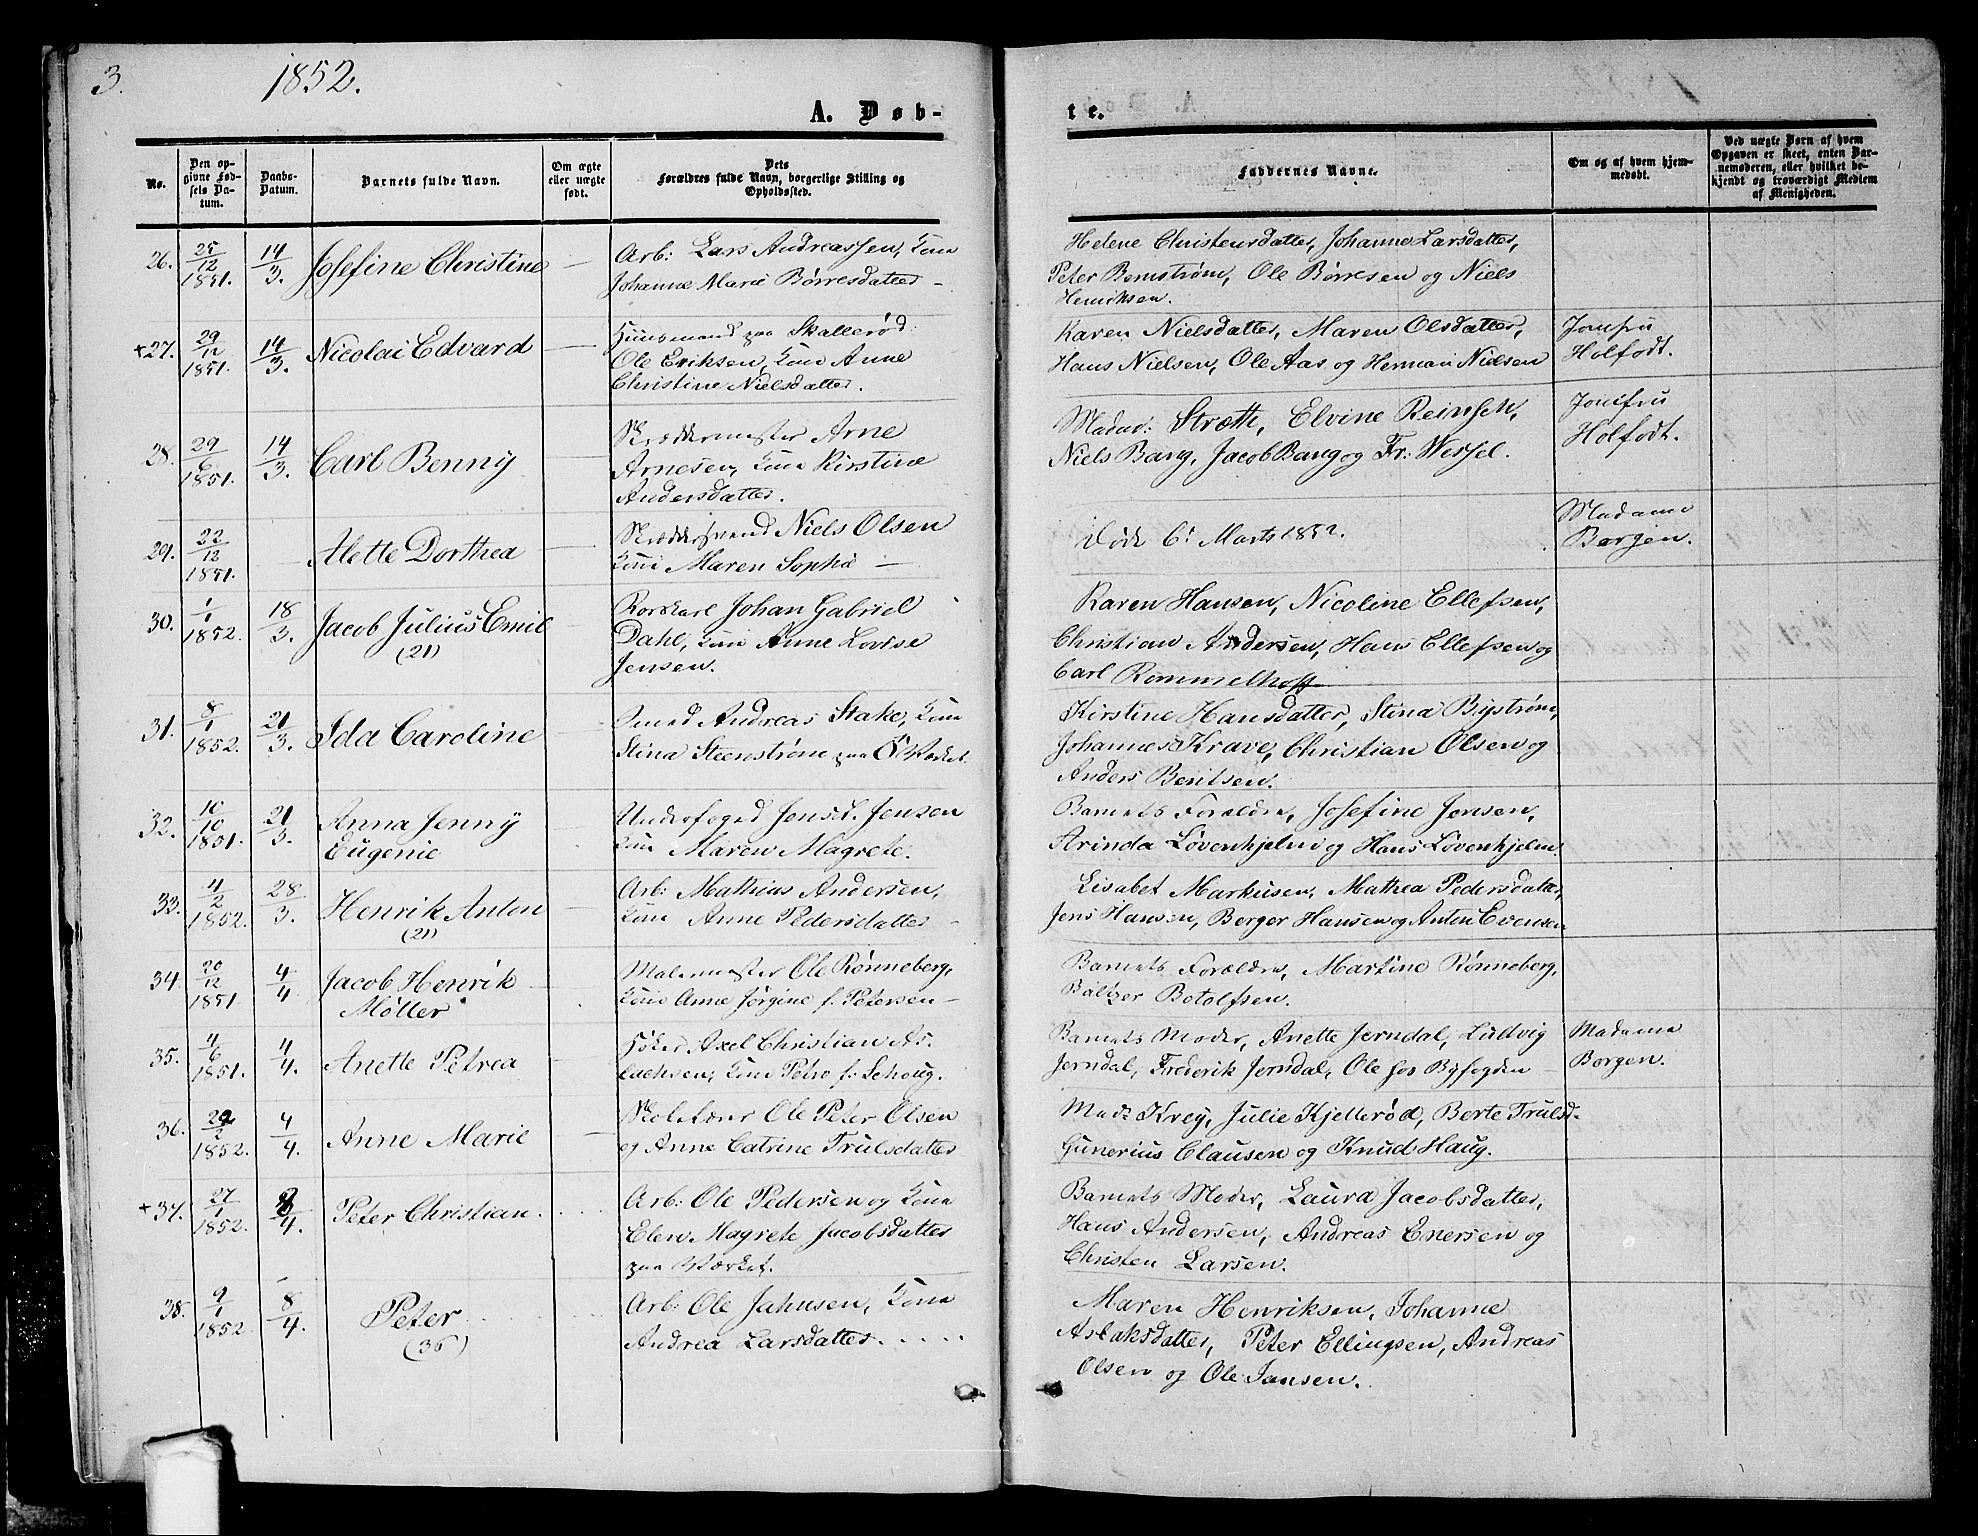 3.
1852.
A. Døb-
te.
No.
Den op-
givne Fød-
sels Da-
tum.
Daabs-
Datum.
Barnets fulde Navn.
Om ægte
eller uægte
født.
Dets
Forældres fulde Navn, borgerlige Stilling og
Opholdssted.
Faddernes Navne.
Om og af hvem hjem-
medøbt.
Ved uægte Børn af hvem
Opgaven er skeet, enten Bar-
nemoderen, eller hvilket be-
kjendt og troværdigt Medlem
af Menigheden.
26. 25/12 1851. 14/3. Josefine Christine —
Arb: Lars Andreassen, Kone
Johanne Marie Børresdatter —
Helene Christensdatter, Johanne Larsdatter,
Peter Bernstrøm, Ole Børresen og Niels
Henriksen.
+27. 29/12 1851. 14/3. Nicolai Edvard —
Huusmand paa Skallerød
Ole Eriksen, Kone Anne
Christine Nielsdatter.
Karen Nielsdatter, Maren Olsdatter,
Hans Nielsen, Ole Aas og Herman Nielsen
Jomfru
Holfodt.
28. 29/6 1851. 14/3. Carl Benny
Skræddermester Arne
Arnesen, Kone Kirstine
Andersdatter.
Madm: Stræth, Elvine Reinsch,
Niels Bang, Jacob Bang og Fr: Wessel.
Jomfru
Holfodt.
29. 22/12 1851. Alette Dorthea —
Skræddersvend Niels Olsen
Kone Maren Sophie —
Døde 6. Marts 1852.
Madame
Borgen.
30. 1/1 1852. 18/3. Jacob Julius Emil
(21)
Rorskarl Johan Gabriel
Dahl, Kone Anne Lovise
Jensen.
Karen Hansen, Nicoline Ellefsen,
Christian Andersen, Hans Ellefsen og
Carl Rommelhoff
31. 8/1 1852. 21/3. Ida Caroline
Smed Andreas Stake, Kone
Stina Steenstrøm paa Ø Værket.
Kirstine Hansdatter, Stina Bystrøm,
Johannes Krave, Christian Olsen og
Anders Beritsen.
32. 10/10 1851. 21/3. Anna Jenny
Eugenie
Underfoged Jens L. Jensen
Kone Maren Magrete.
Barnets Forældre, Josefine Jensen,
Arinda Løvenhjelm og Hans Løvenhjelm.
33. 4/2 1852. 28/3. Henrik Anton
(21)
Arb: Mathias Andersen,
Kone Anne Pedersdatter —
Lisabet Markusen, Mathea Pedersdatter,
Jens Hansen, Borger Hansen og Anton Evensen
34. 20/12 1851. 4/4. Jacob Henrik
Møller
Malermester Ole Rønneberg,
Kone Anne Jørgine f. Petersen —
Barnets Forældre, Martine Rønneberg,
Baltzer Botolfsen.
35. 4/6 1851. 4/4. Anette Petrea
Høker Axel Christian As-
lachsen, Kone Petro f. Schoug.
Barnets Moder, Anette Jerndal, Ludvig
Jerndal, Frederik Jerndal, Ole hos Byfogden
Madame
Borgen.
36. 22/2 1852. 4/4. Anne Marie —
Skolelærer Ole Peter Olsen
og Anne Catrine Trulsdatter
Mad: Krey, Julie Kjellerød, Berte Trulsd.
Gunerius Clausen og Knud Haug.
+37. 27/1 1852. 8/4. Peter Christian.
Arb: Ole Pedersen og Kone
Elen Magrete Jacobsdatter
paa Værket.
Barnets Moder, Laura Jacobsdatter,
Hans Andersen, Andreas Enersen og
Christen Larsen.
38. 9/1 1852. 8/4. Peter
(36)
Arb: Ole Jahnsen, Kone
Andrea Larsdatter.
Maren Henriksen, Johanne
Aslaksdatter, Peter Ellingsen, Andreas
Olsen og Ole Jansen.